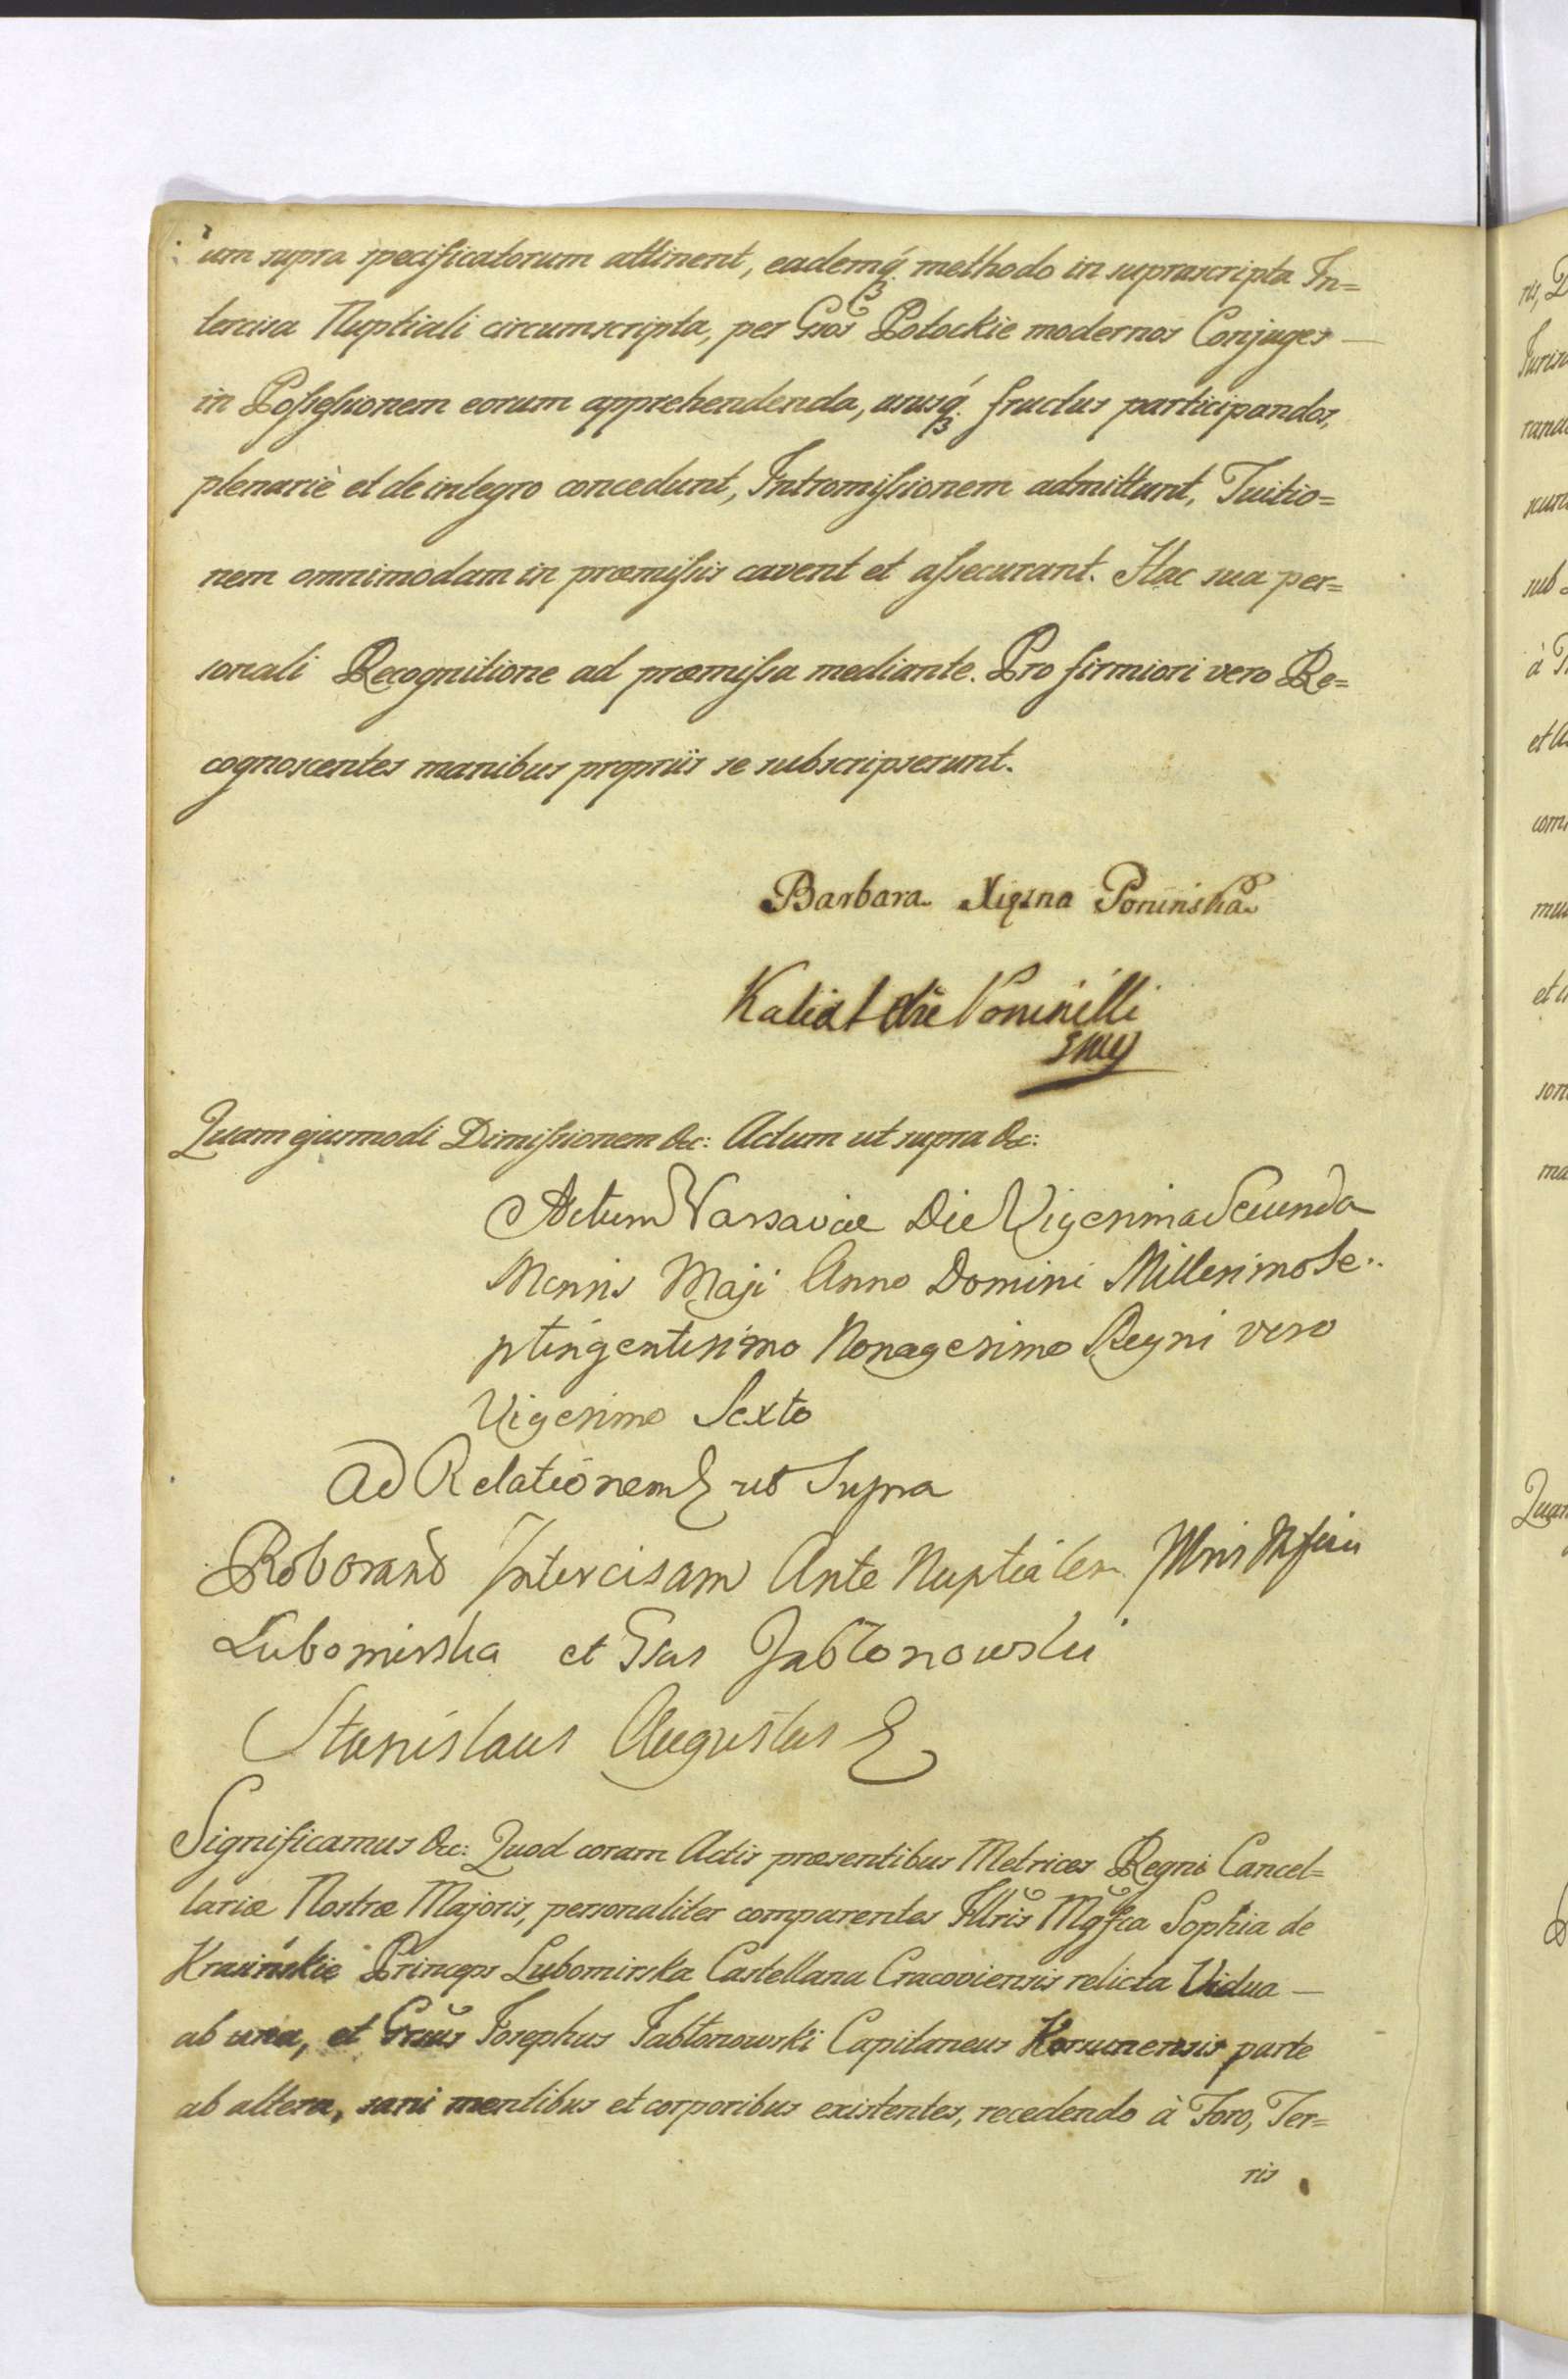 um supra specificatorum attinent, eademq́ꝫ methodo in suprascripta In=
tercisa Nuptiali circumscripta, per Gsos Potockie modernos Conjuges —
in Poſseſsionem eorum apprehendenda, ususq́ꝫ fructus participandos,
plenariè et de integro concedunt, Intromiſsionem admittunt, Tuitio=
nem omnimodam in præmiſsis cavent et aſsecurant. Hac sua per=
sonali Recognitione ad præmiſsa mediante. Pro firmiori vero Re=
cognoscentes manibus propriis se subscripserunt.
Barbara Xiężna Ponińska
Quam ejusmodi Dimiſsionem &c: Actum ut supra &c:
Actum Varsaviæ Die Vigesima Secunda
Mensis Maji Anno Domini Millesimo Se..
ptingentesimo Nonagesimo Regni vero
Vigesimo Sexto
Ad Relationem ut Supra
Roborand Intercisam Ante Nuptialem
Lubomirska et Gsus Jabłonowski
Stanislaus Augustus
Significamus &c: Quod coram Actis præsentibus Metrices Regni Cancel=
lariæ Nostræ Majoris, personaliter comparentes Illris Mgfca Sophia de
Krasińskie Princeps Lubomirska Castellana Cracoviensis relicta Vidua —
ab una, et Gsus Josephus Jabłonowski Capitaneus Korsunensis parte
ab altera, sani mentibus et corporibus existentes, recedendo à Foro, Ter=
ris